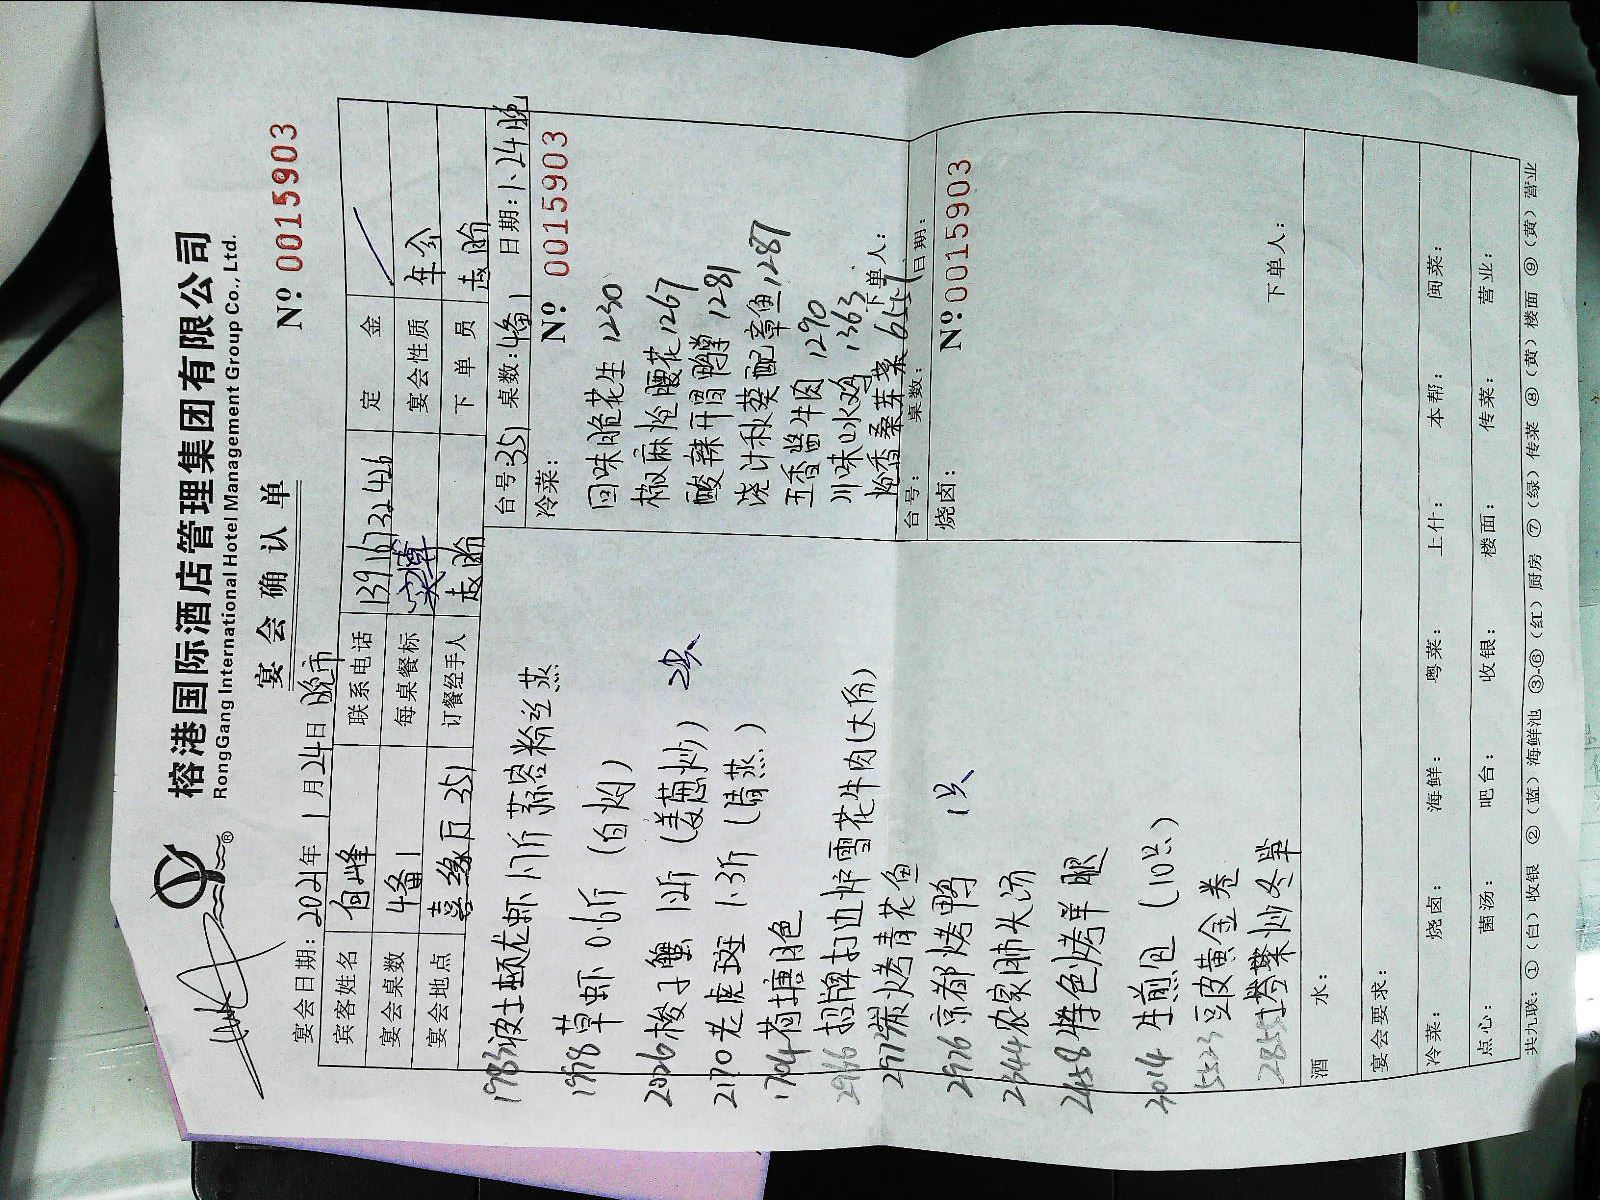 榕港国际酒店管理集团有限公司
RongGang International Hotel Management Group Co., Ltd.
宴会确认单
Nº 0015903
宴会日期: 2021年 1月24日 晚市
宾客姓名 何峰 联系电话 13916732426 定金 /
宴会桌数 4备1 每桌餐标 宴会性质 年会
宴会地点 喜缘厅 351 订餐经手人 赵 下单员 赵
台号: 351 桌数: 4备1 日期: 1.24晚
冷菜: Nº 0015903
回味脆花生 1230
椒麻炝腰花 1267
酸辣开胃 1281
浇汁秋葵配章鱼 1287
五香酱牛肉 1290
川味口水鸡 1363
桑芽菜
下单人:
台号: 桌数: 日期:
烧卤: Nº 0015903
下单人:
1983 波士顿龙虾 1.7斤 蒜蓉粉丝蒸
1998 草虾 0.6斤 (白灼)
2026 梭子蟹 1.2斤 (姜葱炒) 2只
2170 老虎斑 1.3斤 (清蒸)
1704 荷塘月色
2966 招牌打边炉雪花牛肉(大份)
2973 炭火烤青花鱼
2976 京都烤鸭 1只
2344 农家肺头汤
2458 特色烤羊腿
3014 生煎包 (10只)
5523 豆皮黄金卷
285 塔菜炒冬笋
酒水:
宴会要求:
冷菜: 烧卤: 海鲜: 粤菜: 上什: 本帮: 闽菜:
点心: 菌汤: 吧台: 收银: 楼面: 传菜: 营业:
共九联: ①(白)收银 ②(蓝)海鲜池 ③-⑥(红)厨房 ⑦(绿)传菜 ⑧(黄)楼面 ⑨(黄)营业